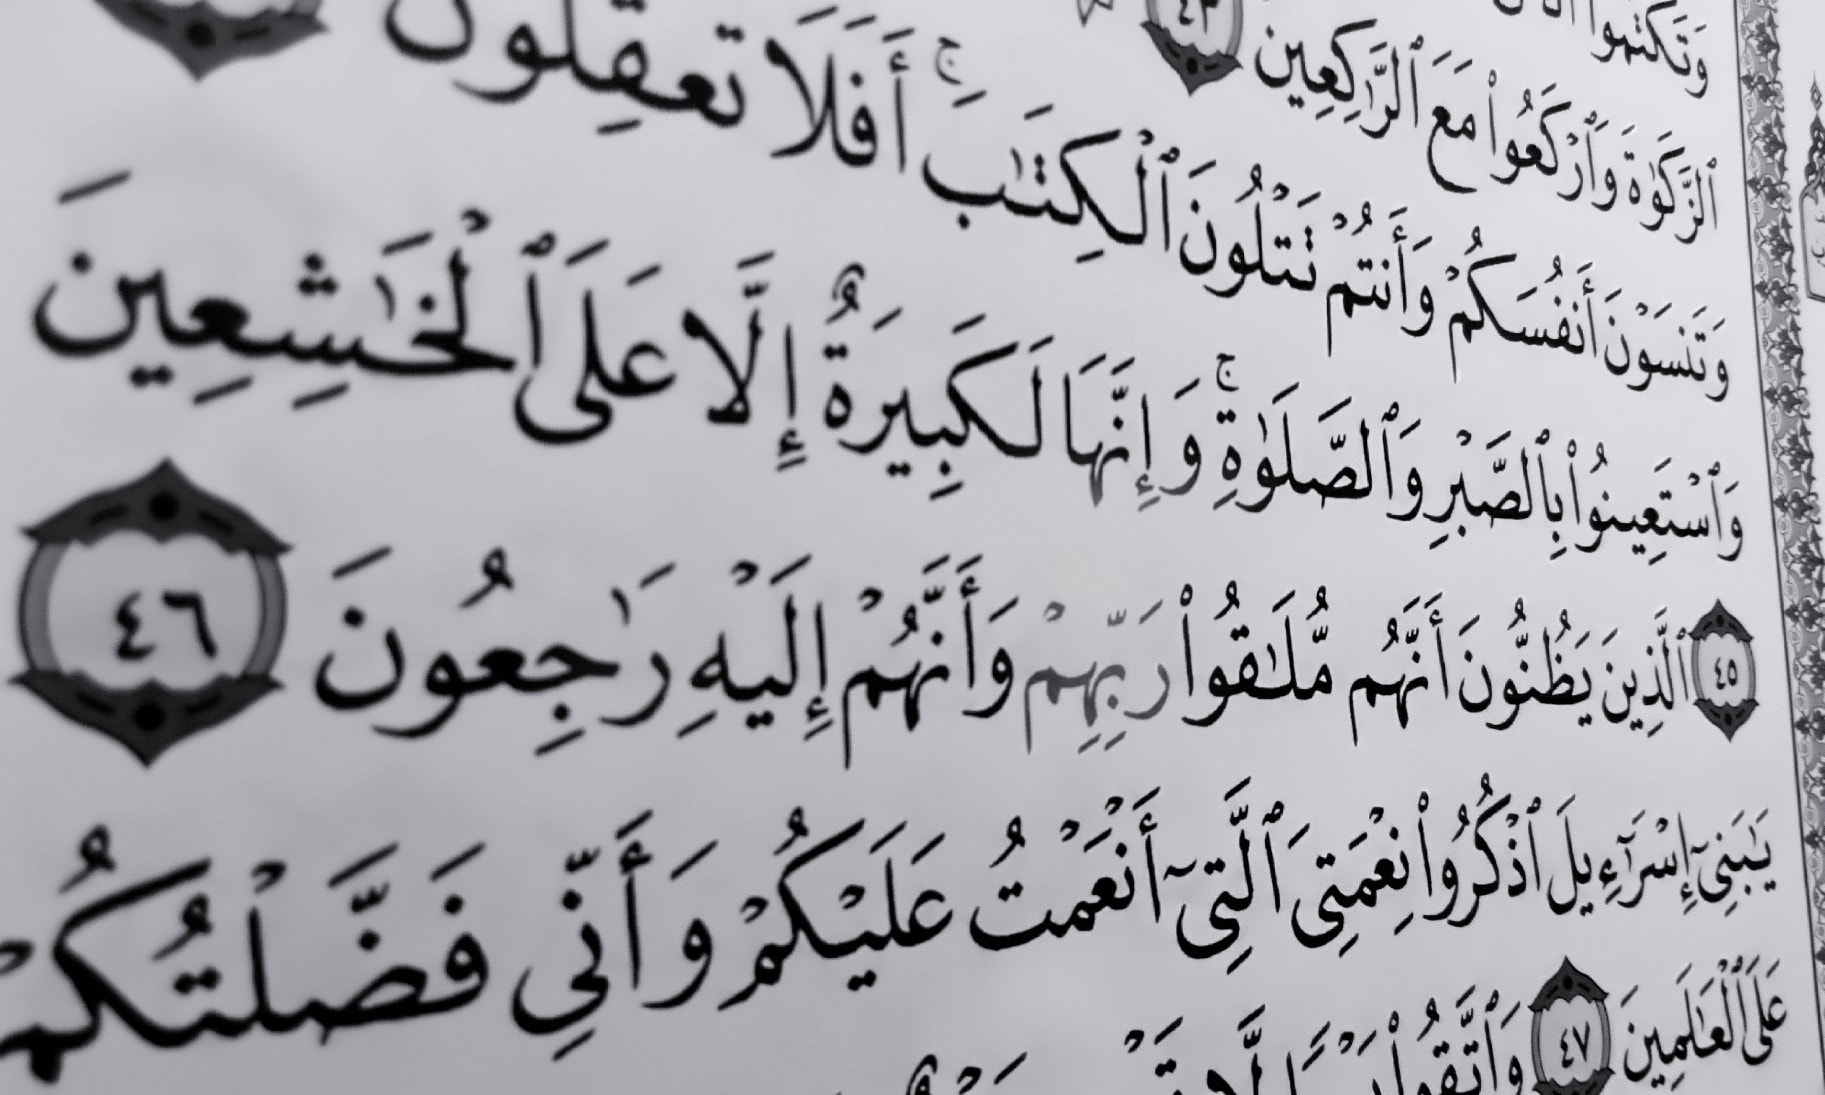 وَتَكْتُمُوا۟
ٱلزَّكَوٰةَ وَٱرْكَعُوا۟ مَعَ ٱلرَّٰكِعِينَ ٤٣
وَتَنسَوْنَ أَنفُسَكُمْ وَأَنتُمْ تَتْلُونَ ٱلْكِتَٰبَ ۚ أَفَلَا تَعْقِلُونَ
وَٱسْتَعِينُوا۟ بِٱلصَّبْرِ وَٱلصَّلَوٰةِ ۚ وَإِنَّهَا لَكَبِيرَةٌ إِلَّا عَلَى ٱلْخَٰشِعِينَ
٤٥ ٱلَّذِينَ يَظُنُّونَ أَنَّهُم مُّلَٰقُوا۟ رَبِّهِمْ وَأَنَّهُمْ إِلَيْهِ رَٰجِعُونَ ٤٦
يَٰبَنِىٓ إِسْرَٰٓءِيلَ ٱذْكُرُوا۟ نِعْمَتِىَ ٱلَّتِىٓ أَنْعَمْتُ عَلَيْكُمْ وَأَنِّى فَضَّلْتُكُمْ
عَلَى ٱلْعَٰلَمِينَ ٤٧ وَٱتَّقُوا۟